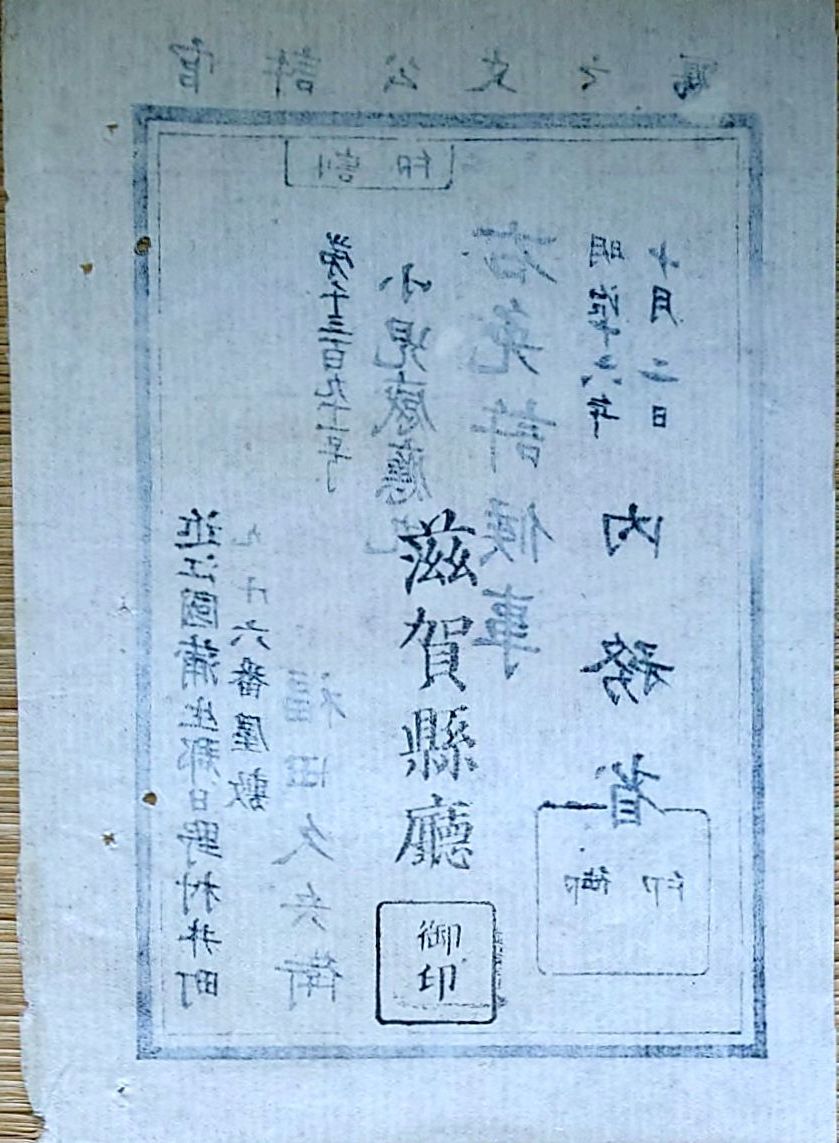 官許公文之寫
割印
第千三百九十一号
近江國蒲生郡日野村井町
九十六番屋敷
福田久兵衛
小児感應丸
滋賀縣廳
御印
右免許候事
明治十六年
十月二日
内務省
御印